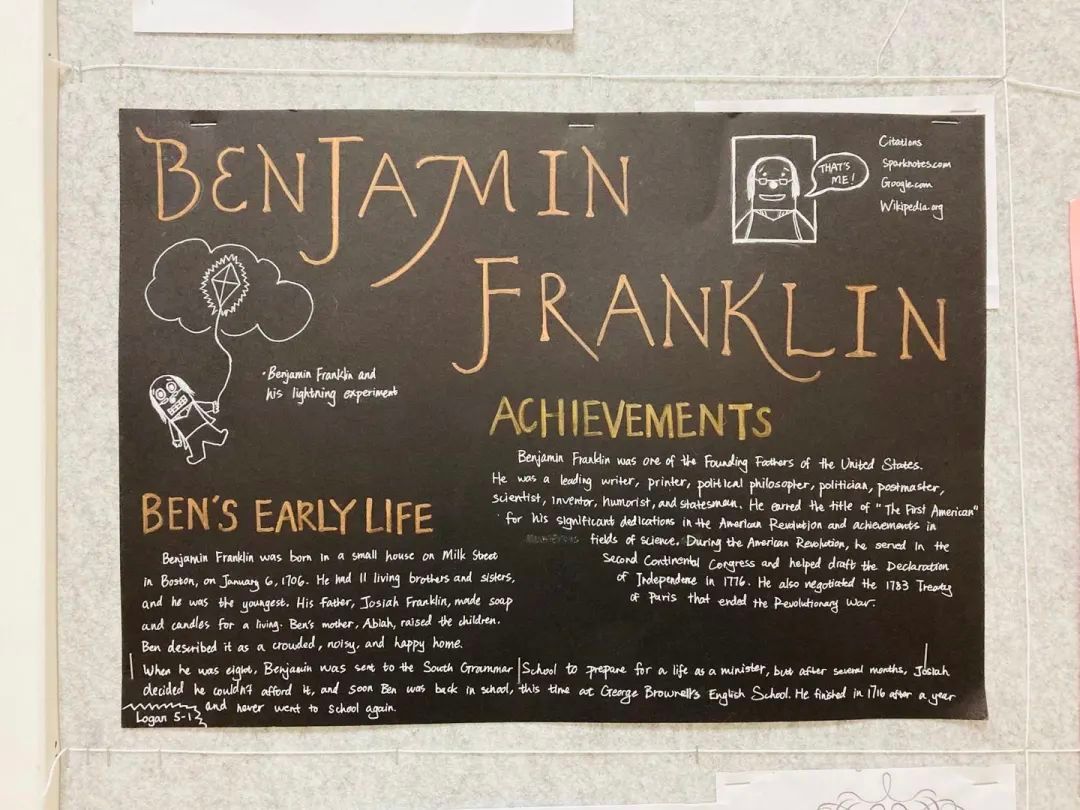 BENJAMIN
FRANKLIN
THAT'S
ME!
Citations
Sparknotes.com
Google.com
Wikipedia.org
•Benjamin Franklin and
his lightning experiment
ACHIEVEMENTS
Benjamin Franklin was one of the Founding Fathers of the United States.
He was a leading writer, printer, political philosopher, politician, postmaster,
scientist, inventor, humorist, and statesman. He earned the title of "The First American"
for his significant dedications in the American Revolution and achievements in
fields of science. During the American Revolution, he served in the
Second Continental Congress and helped draft the Declaration
of Independence in 1776. He also negotiated the 1783 Treaty
of Paris that ended the Revolutionary War.
BEN'S EARLY LIFE
Benjamin Franklin was born in a small house on Milk Street
in Boston, on January 6, 1706. He had 11 living brothers and sisters,
and he was the youngest. His father, Josiah Franklin, made soap
and candles for a living. Ben's mother, Abiah, raised the children.
Ben described it as a crowded, noisy, and happy home.
When he was eight, Benjamin was sent to the South Grammar School to prepare for a life as a minister, but after several months, Josiah
decided he couldn't afford it, and soon Ben was back in school, this time at George Brownell's English School. He finished in 1716 after a year
and never went to school again.
Logan 5-12